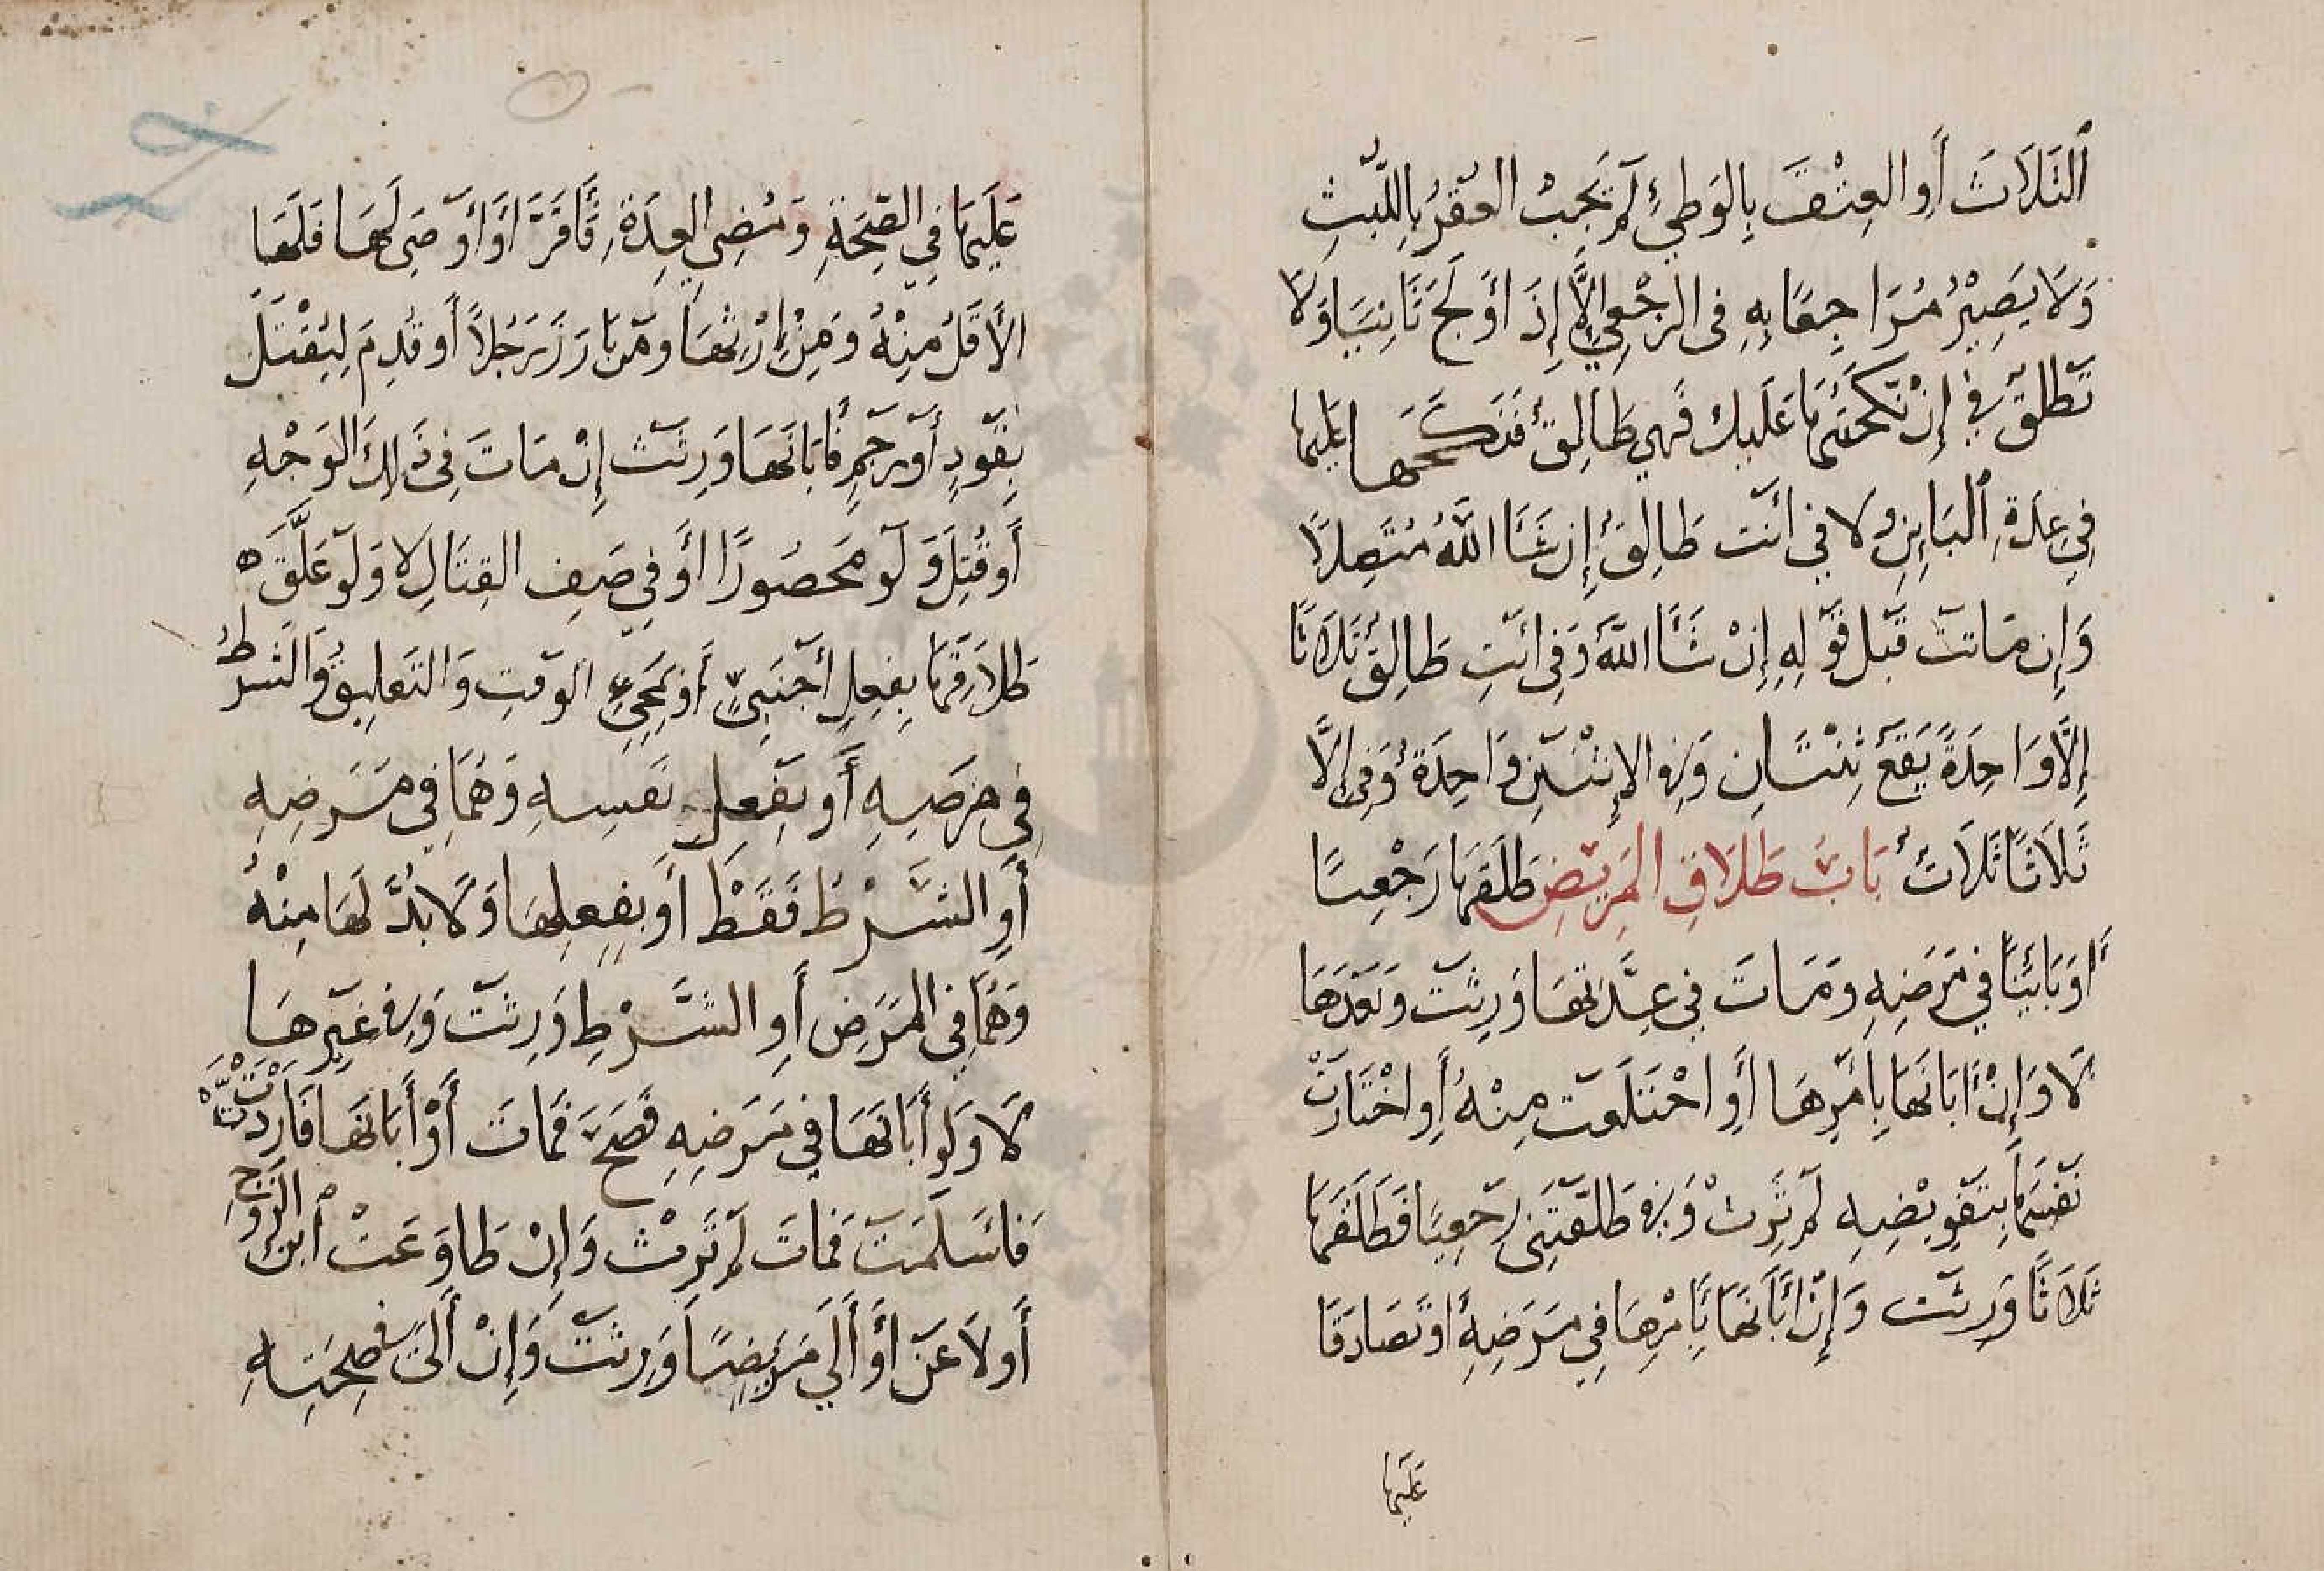 الثَلَاثَ أَوِ العِتْقَ بِالوَطِئِ لَمْ يَجِبْ العُقْرُ بِاللَّبْثِ
وَلَا يَصِيْرُ مُرَاجِعًا بِهِ فى الرَجْعِىِّ إِلَّا إِذَ أَوْلَجَ ثَانِيًا وَلَا
تَطلُقْ فِي إِنْ نَكَحْتُهَا عَلَيك فَهِي طَالِقٌ فَنَكَحَهَا عَلَيهَا
فِي عِدَةِ البَايِنِ وَلا في أَنْتِ طَالِقٌ إِن شَآ اللَّهُ مُتَّصِلًا
وَإِن مَاتَتْ قَبلَ قَوْلِهِ إِنْ شَآ اللَّهُ وَفِى أَنْتِ طَالِقٌ ثَلَاثًا
إِلَّا وَاحِدَةً يَقَعُ ثِنْتَانِ وَفِي الإِثْنَتَيْنِ وَاحِدَةٌ وَفِى إِلَّا
ثَلَاثًا ثَلَاثٌ بَابُ طَلَاقِ المَرِيْضِ طَلَقَهَا رَجْعِيًا
أَوْ بَائِنًا في مَرَضِهِ وَمَاتَ فِي عِدَّتِهَا وَرِثَتْ وَبَعْدَهَا
لَا وَإِنْ أَبَانَهَا بِأَمْرِهَا أَوِ احْتَلَعَتْ مِنْهُ أَوِ اخْتَارَتْ
نَفْسَهَا بِتَفْوِيْضِهِ لَمْ تَرِثْ وَفِي طَلِّقْنِي رَجْعِيًا فَطَلَقَهَا
ثَلَاثًا وَرِثَتْ وَإِنْ أَبَانَهَا بِأَمْرِهَا فِي مَرَضِهِ أَوْ تَصَادَقَا
عَلَيهَا
عَلَيهَا فِي الصِّحَةِ وَمُضِي العِدَةِ فَأَقَرَّ أَوَ أَوْصَى لَهَا فَلَهَا
الأَقَلُ مِنْهُ وَمِنْ إِرْثِهَا وَمَنْ بَارَزَ رَجُلًا أَو قُدِمَ لِيُقْتَلَ
بِقَوَدٍ أَوْ رَجْمٍ فَأَبَانَهَا وَرِثَتْ إِنْ مَاتَ فِى ذَالِكَ الوَجْهِ
أَو قُتِلَ وَلَوْ مَحْصُورًا أَوْ فِي صَفِ القِتَالِ لا وَلَوْ عَلَّقَ
طَلَاقَهَا بِفِعْلِ أَجْنَبِيٍّ أَوْ بِمَجِيءِ الوَقتِ وَالتَعلِيقُ وَالشَرطُ
فِي مَرَضِهِ أَو بِفِعلِ نَفسِهِ وَهُمَا فِي مَرَضِهِ
أَوِ الشَّرْطُ فَقَطْ أَو بِفِعلِهَا وَلَا بُدَّ لَهَا مِنْهُ
وَهُمَا فِي المَرَضِ أَوِ الشَّرْطِ وَرِثَتْ وَفِي غَيْرِهَا
لَا وَلَو أَبَانَهَا فِي مَرَضِهِ فَصَحَّ فَمَاتَ أَوْ أَبَانَهَا فَارْتَدَّتْ
فَأَسْلَمَتْ فَمَاتَ لَمْ تَرِثْ وَإِنْ طَاوَعَتْ ابنَ الزَوجِ
أَو لَاعَنَ أَوْ أَلَى مَرِيْضًا وَرِثَتْ وَإِنْ أَلَى فِي صِحَتِهِ